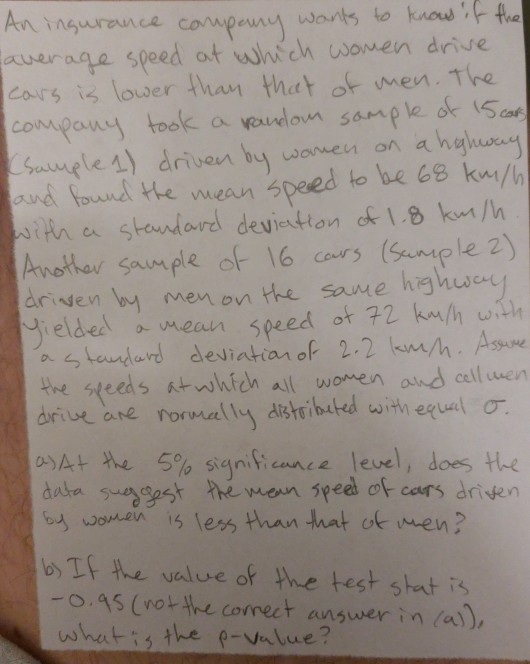 An insurance company wants to know if the
average speed at which women drive
cars is lower than that of men. The
company took a random sample of 15 cars
(Sample 1) driven by women on a highway
and found the mean speed to be 68 km/h
with a standard deviation of 1.8 km/h.
Another sample of 16 cars (Sample 2)
driven by men on the same highway
yielded a mean speed of 72 km/h with
a standard deviation of 2.2 km/h. Assume
the speeds at which all women and all men
drive are normally distributed with equal σ.
a) At the 5% significance level, does the
data suggest the mean speed of cars driven
by women is less than that of men?
b) If the value of the test stat is
-0.95 (not the correct answer in (a)),
what is the p-value?